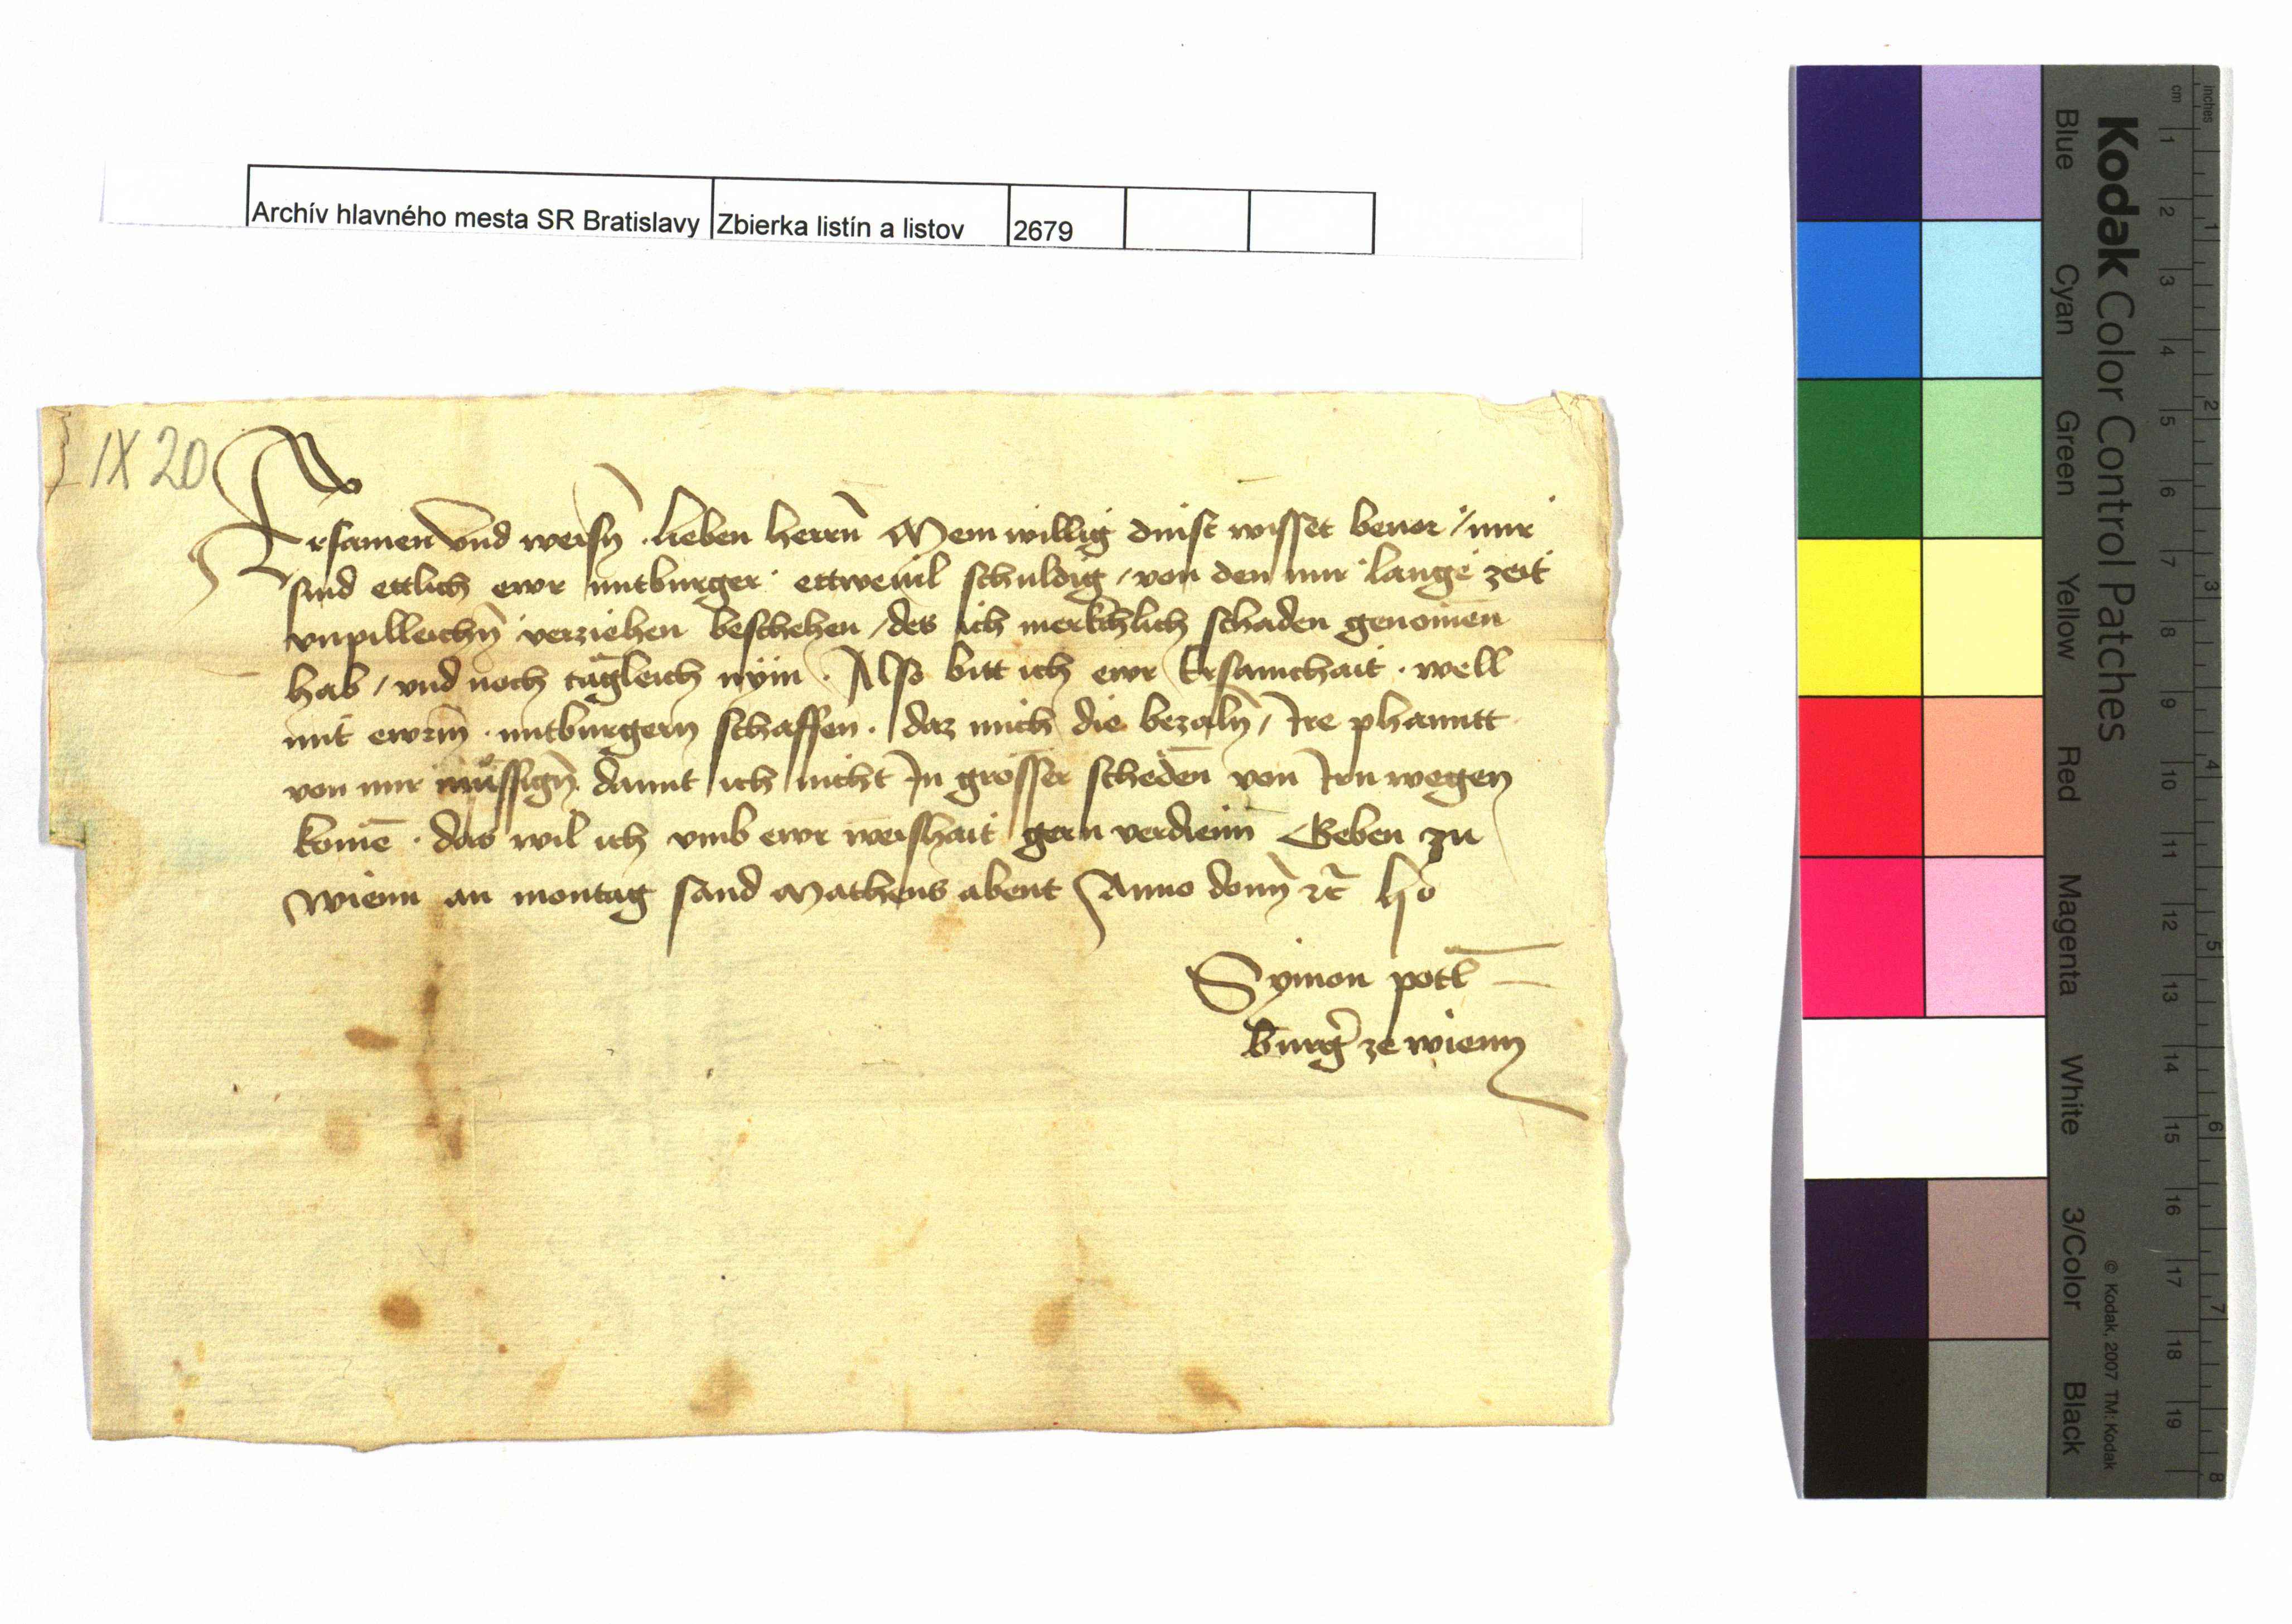 Archív hlavného mesta SR Bratislavy Zbierka listín a listov 2679
IX 20
Ersamen vnd weisn̄ lieben herrn̄ Mein willig dinst wisset beuor / mir
sind ettlich ewr mitburger ettweuil schuldig / von den mir lange zeit
vnpilleichn̄ verziehen beschehen / des ich merkchlich schaden genomen
hab / vnd noch tagleich nÿm · Also bitt ich ewr Ersamchait · well
mit ewrm̄ · mitburgern schaffen · daz mich die bezaln̄ / Ire phanntt
von mir müssign̄ damit ich nicht In grosser scheden von Irn wegen
komē · das wil ich vmb ewr weishait gern verdienn̄ Geben zu
Wienn an montag sand Matheus abent Anno dom̄ ꝛc̄ Lº
Symon potl̄
burg̉ ze wienn
Kodak Color Control Patches
Blue Cyan Green Yellow Red Magenta White 3/Color Black
© Kodak, 2007 TM: Kodak
inches 1 2 3 4 5 6 7 8
cm 1 2 3 4 5 6 7 8 9 10 11 12 13 14 15 16 17 18 19